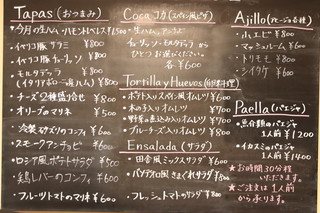 Tapas (おつまみ)
今月の生ハム・ハモンベジョータ ¥1500
イベリコ豚 サラミ ¥800
イベリコ豚 チョリソー ¥800
モルタデッラ ¥800
(イタリアボローニャ風ハム)
チーズ2種盛合せ ¥800
オリーブのマリネ ¥500
冷製 ¥600
スモークアンチョビ ¥600
ロシア風ポテトサラダ ¥500
鶏レバーのコンフィ ¥600
フルーツトマトのマリネ ¥600
Coca JK (スペイン風ピザ)
ひとつお選びください
各 ¥600
Tortilla y Huevos (卵料理)
ポテト入りスペイン風オムレツ ¥600
木の子入りオムレツ ¥700
野菜の煮込み入りオムレツ ¥700
ブルーチーズ入りオムレツ ¥800
Ensalada (サラダ)
田舎風ミックスサラダ ¥600
バジクチイロ風 さくれサラダ ¥800
フレッシュトマトのサラダ ¥800
Ajillo (アヒージョ各種)
小エビ ¥800
マッシュルーム ¥600
トリモモ ¥800
シイタケ ¥600
Paella (パエジャ)
魚介類のパエジャ
1人前 ¥1200
イカスミのパエジャ
1人前 ¥1400
★お時間30分程
いただきます。
★ご注文は1人前
から承ります。